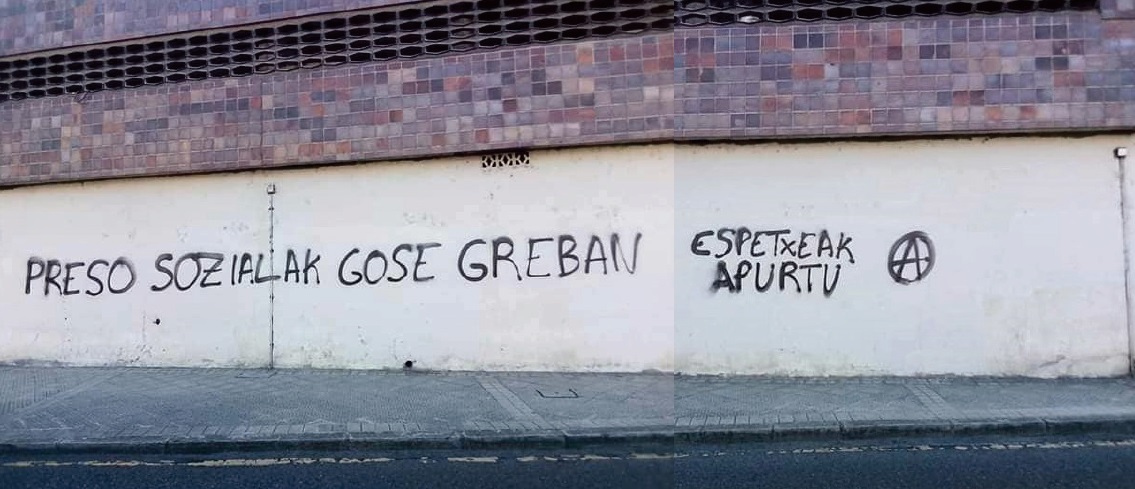 PRESO SOZIALAK GOSE GREBAN
ESPETXEAK
APURTU